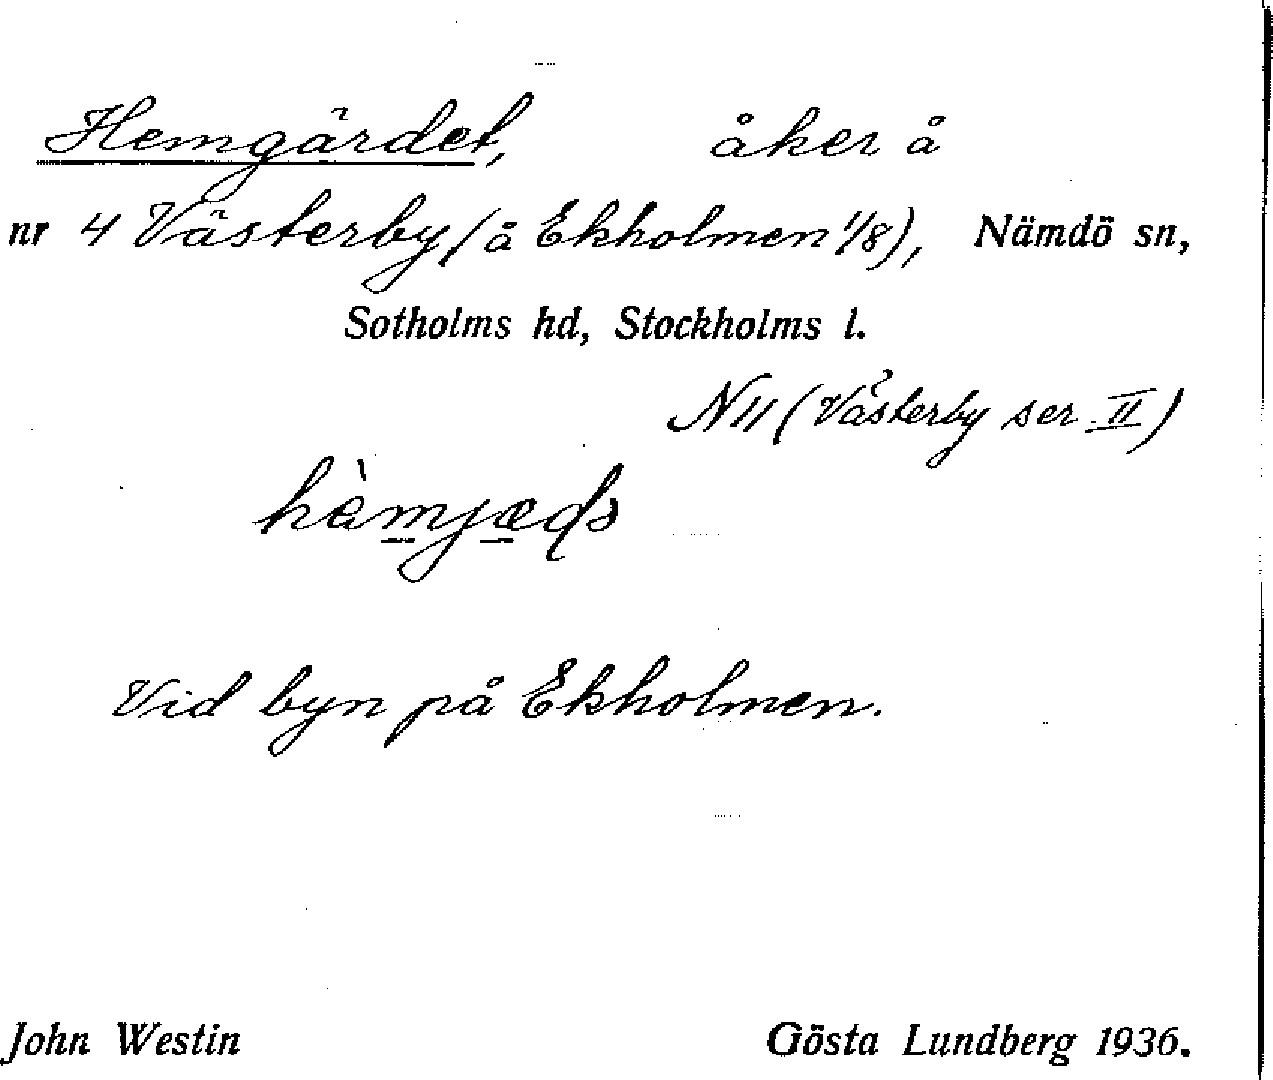 Hemgärdet, åker å
nr 4 Västerby (å Ekholmen 1/8), Nämdö sn,
Sotholms hd, Stockholms l.
N11 (Västerby ser. II)
Vid byn på Ekholmen.
John Westin Gösta Lundberg 1936.